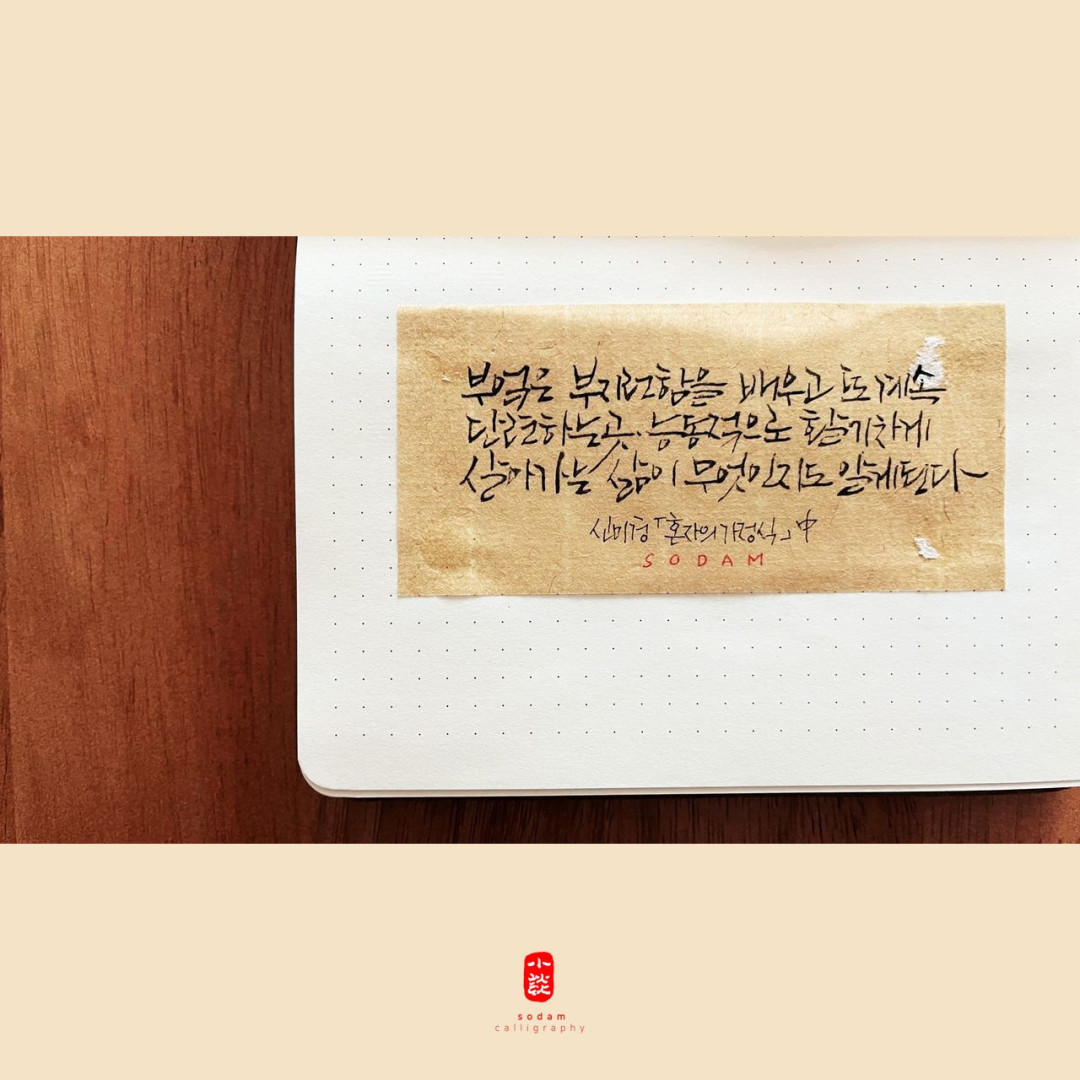 부엌은 부지런함을 배우고 또 계속
단련하는 곳. 능동적으로 활기차게
살아가는 삶이 무엇인지도 알게된다
신미경 「혼자의 가정식」 中
SODAM
小談
sodam
calligraphy